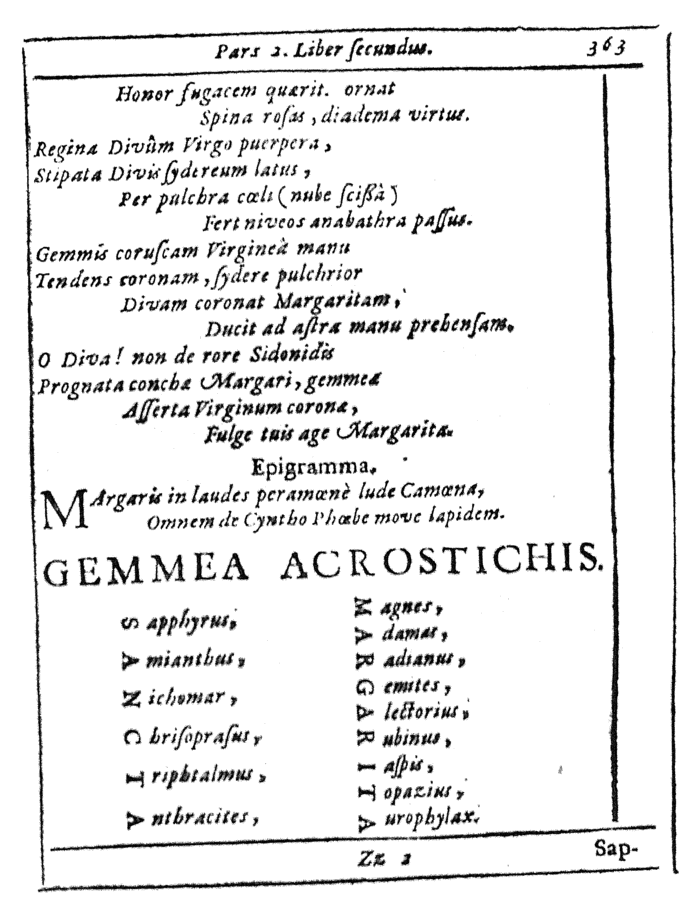 Pars 2. Liber ſecundus. 363
Honor fugacem quærit. ornat
Spina roſas, diadema virtus.
Regina Divûm Virgo puerpera,
Stipata Divis ſydereum latus,
Per pulchra cœli (nube ſciſſà)
Fert niveos anabathra paſſus.
Gemmis coruſcam Virgineà manu
Tendens coronam, ſydere pulchrior
Divam coronat Margaritam,
Ducit ad aſtra manu prehenſam.
O Diva! non de rore Sidonidis
Prognata concha Margari, gemmea
Aſſerta Virginum corona,
Fulge tuis age Margarita.
Epigramma.
MArgaris in laudes peramœnè lude Camœna,
Omnem de Cyntho Phœbe move lapidem.
GEMMEA ACROSTICHIS.
Sapphyrus,
Amianthus,
Nichomar,
Chriſopraſus,
Triphtalmus,
Anthracites,
Magnes,
Adamas,
Radianus,
Gemites,
Alectorius,
Rubinus,
Iaſpis,
Topazius,
Aurophylax.
Zz 2 Sap-